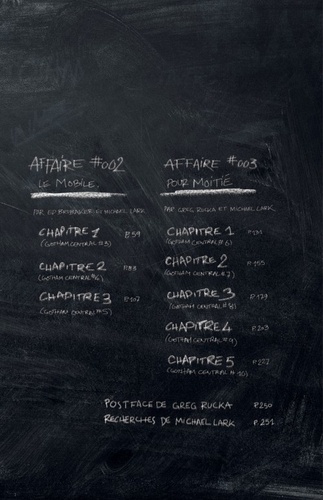 AFFAIRE #002
LE MOBILE
PAR ED BRUBAKER ET MICHAEL LARK
CHAPITRE 1 P.59
(GOTHAM CENTRAL #3)
CHAPITRE 2
(GOTHAM CENTRAL #4)
CHAPITRE 3
(GOTHAM CENTRAL #5)
AFFAIRE #003
POUR MOITIÉ
PAR GREG RUCKA ET MICHAEL LARK
CHAPITRE 1
(GOTHAM CENTRAL #6)
CHAPITRE 2
(GOTHAM CENTRAL #7)
CHAPITRE 3
(GOTHAM CENTRAL #8)
CHAPITRE 4
(GOTHAM CENTRAL #9)
CHAPITRE 5
(GOTHAM CENTRAL #10)
POSTFACE DE GREG RUCKA P.250
RECHERCHES DE MICHAEL LARK P.251